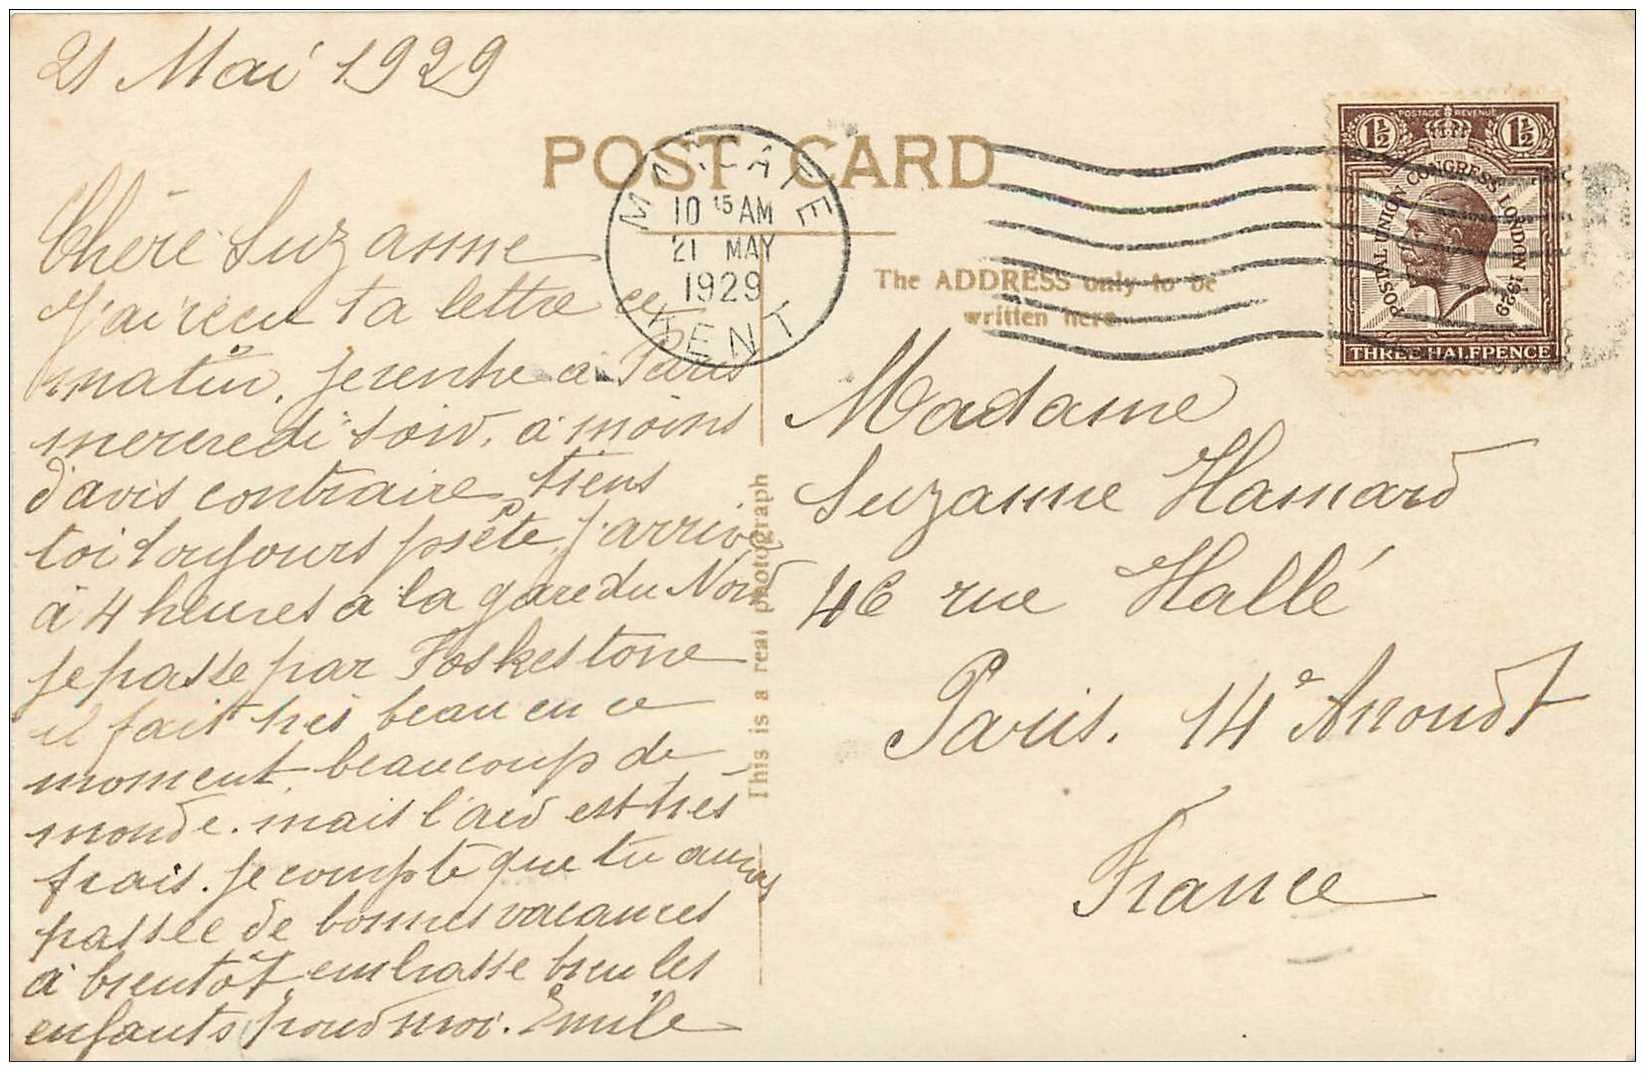 21 Mai 1929
POST CARD
MARGATE
10 15 AM
21 MAY
1929
KENT
1½ POSTAGE REVENUE 1½
POSTAL UNION CONGRESS LONDON 1929
THREE HALFPENCE
The ADDRESS only to be
written here.
This is a real photograph
Chére Suzanne
J'ai recu ta lettre ce
matin, je rentre a Paris
mercredi soir, a moins
d'avis contraire, tiens
toi toujours prête, j'arrive
à 4 heures à la gare du Nord
je passe par Foskestone
il fait très beau en ce
moment, beaucoup de
monde. mais l'air est très
frais. je compte que tu auras
passée de bonnes vacances
à bientôt, embrasse bien les
enfants pour moi. Emile
Madame
Suzanne Hamard
46 rue Hallé
Paris. 14e Arrondt
France